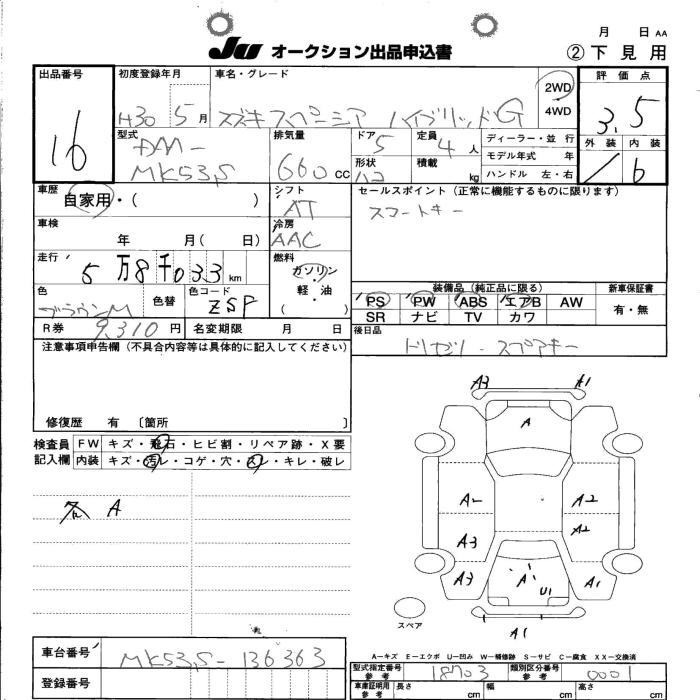 月 日 AA
JU オークション出品申込書 ②下見用
出品番号 初度登録年月 車名・グレード 2WD 評価点
16 H30 5月 スズキ スペーシア ハイブリッドG 4WD 3.5
型式 排気量 ドア 定員 ディーラー・並 行 外装 内装
DAA- 660 CC 5 4人 モデル年式 年
MK53S 形状 積載 kg ハンドル 左・右 b
車歴 シフト セールスポイント(正常に機能するものに限ります)
自家用・( ) AT スマートキー
車検 冷房
年 月( 日) AAC
走行 燃料
5万8千033km ガソリン
軽・油
( )
装備品(純正品に限る) 新車保証書
色 色替 色コード PS PW ABS エアB AW 有・無
ブラウンM ZSP SR ナビ TV カワ
R券 9,310円 名変期限 月 日 後日品
注意事項申告欄(不具合内容等は具体的に記入してください)
トリセツ・スペアキー
修復歴 有 〔箇所 〕
検査員 FW キズ・飛石・ヒビ割・リペア跡・X要
記入欄 内装 キズ・汚レ・コゲ・穴・スレ・キレ・破レ
各 A
A3 A1
A
A2 A2
A3 A2
A3 A U1 A1
A1
スペア
A−キズ E−エクボ U−凹み W−補修跡 S−サビ C−腐食 XX−交換済
車台番号 MK53S-136363
型式指定番号 参考 18703 類別区分番号 参考 0001
登録番号
車庫証明用 参考 長さ cm 幅 cm 高さ cm